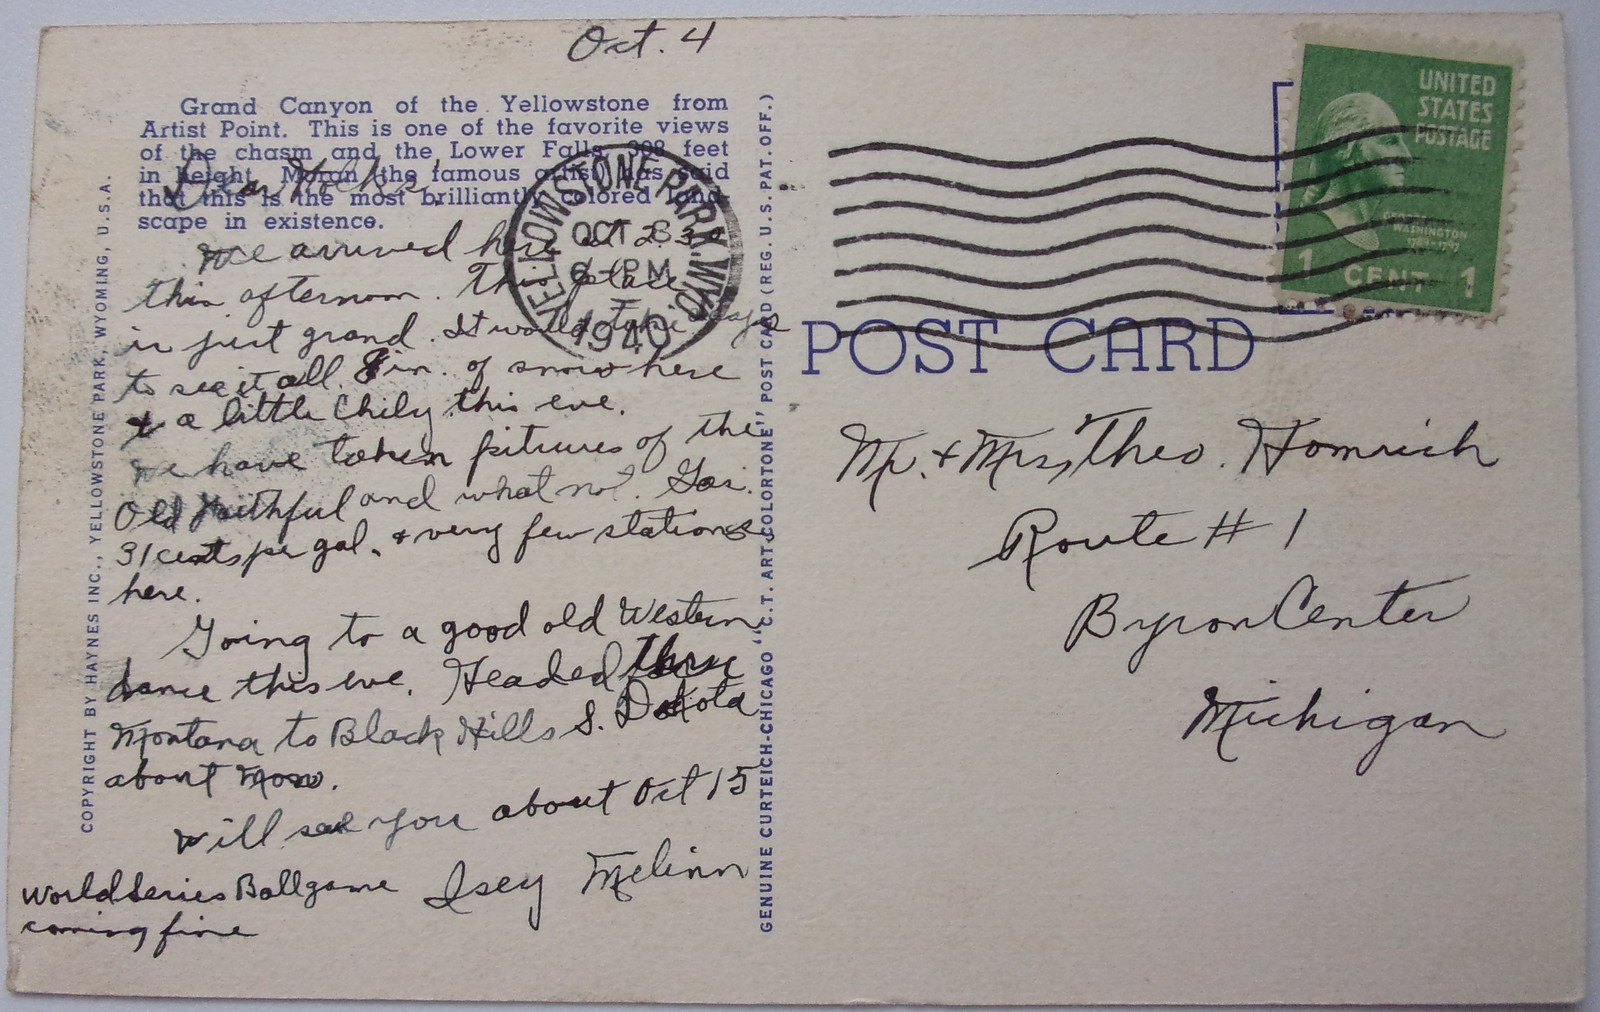 Oct. 4
Grand Canyon of the Yellowstone from
Artist Point. This is one of the favorite views
of the chasm and the Lower Falls, 308 feet
in height. Moran (the famous artist) has said
that this is the most brilliantly colored land-
scape in existence.
Dear Folks,
We arrived here at 2:30
this afternoon. This place
is just grand. It would take days
to see it all. 8 in. of snow here
& a little Chily this eve.
We have taken pitrures of the
Old Faithful and what not. Gas.
31 cents per gal. & very few stations
here.
Going to a good old Western
dance this eve. Headed thru
Montana to Black Hills S. Dakota
about Mon.
Will see you about Oct 15
Isey Melinn
World Series Ballgame
coming fine
COPYRIGHT BY HAYNES INC., YELLOWSTONE PARK, WYOMING, U.S.A.
GENUINE CURTEICH-CHICAGO "C.T. ART-COLORTONE" POST CARD (REG. U.S. PAT. OFF.)
YELLOWSTONE PARK, WYO.
OCT
PM
1940
UNITED
STATES
POSTAGE
WASHINGTON
1789-1797
1 CENT 1
POST CARD
Mr. + Mrs, Theo. Homrich
Route # 1
Byron Center
Michigan